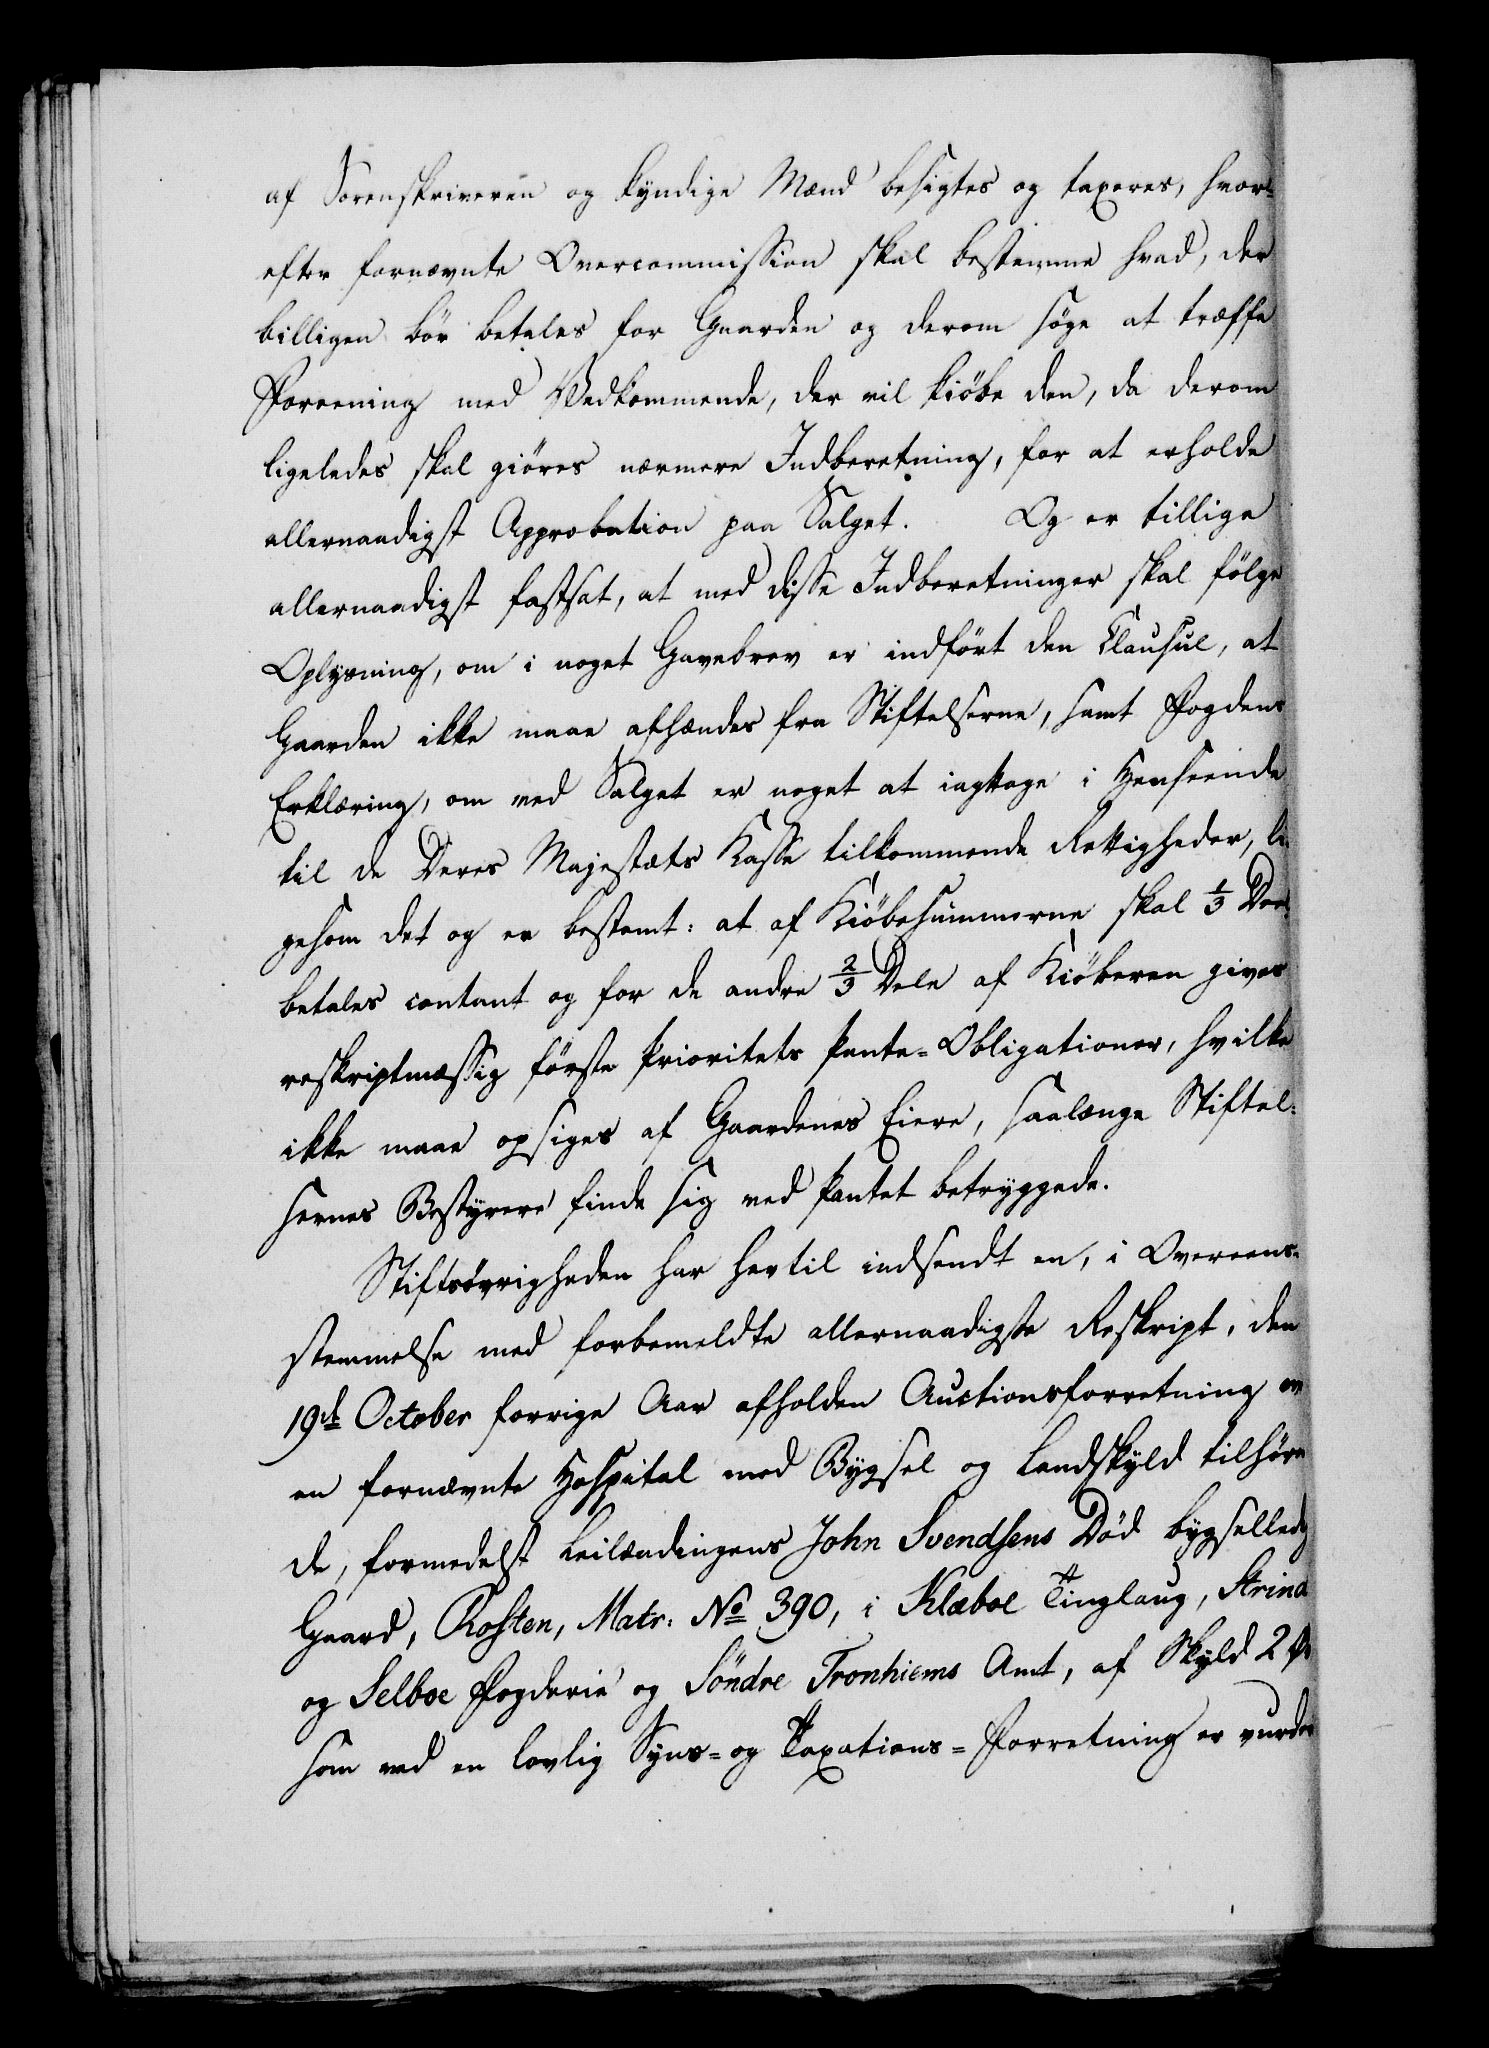 af Sorenskriveren og kyndige Mænd besigtes og taxeres, hvor-
efter fornævnte Overcommission skal bestemme hvad, der
billigen bör betales for Gaarden og derom söge at træffe
Foreening med Vedkommende, der vil kiöbe den, da derom
ligeledes skal giöres nærmere Indberetning, for at erholde
allernaadigst Approbation paa Salget. Og er tillige
allernaadigst fastsat, at med disse Indberetninger skal fölge
Oplysning, om i noget Gavebrev er indfört den Clausul, at
Gaarden ikke maae afhændes fra Stiftelserne, samt Fogdens
Erklæring, om ved Salget er noget at iagttage i Henseende
til de Deres Majestæts Kasse tilkommende Rettigheder, li-
gesom det og er bestemt: at af Kiöbesummerne skal 1/3 Deel
betales contant og for de andre 2/3 Dele af Kiöberen gives
reskriptmæssig förste Prioritets Pante-Obligationer, hvilke
ikke maae opsiges af Gaardenes Eiere, saalænge Stiftel-
sernes Bestyrere finde sig ved Pantet betryggede.
Stiftsövrigheden har hertil indsendt en, i Overeens-
stemmelse med forbemeldte allernaadigste Reskript, den
19de October forrige Aar afholden Auctionsforretning ov
en fornævnte Hospital med Bygsel og Landskyld tilhören
de, formedelst Leilændingens John Svendsens Död bygselledig
Gaard, Rosten, Matr: No 390, i Klæboe Tinglaug, Strind
og Selboe Fogderie og Söndre Tronhiems Amt, af Skyld 2
som ved en lovlig Syns- og Taxations-Forretning er vurder